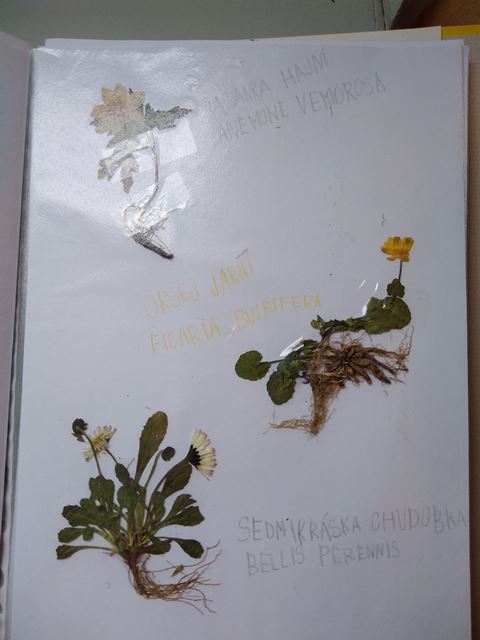 SASANKA HAJNÍ
ANEMONE NEMOROSA
ORSEJ JARNÍ
FICARIA BULBIFERA
SEDMIKRÁSKA CHUDOBKA
BELLIS PERENNIS